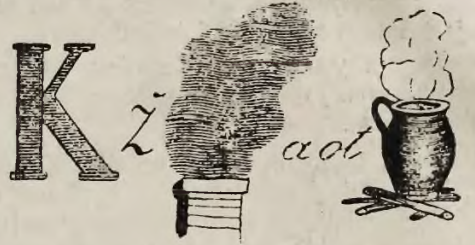 K ž aot